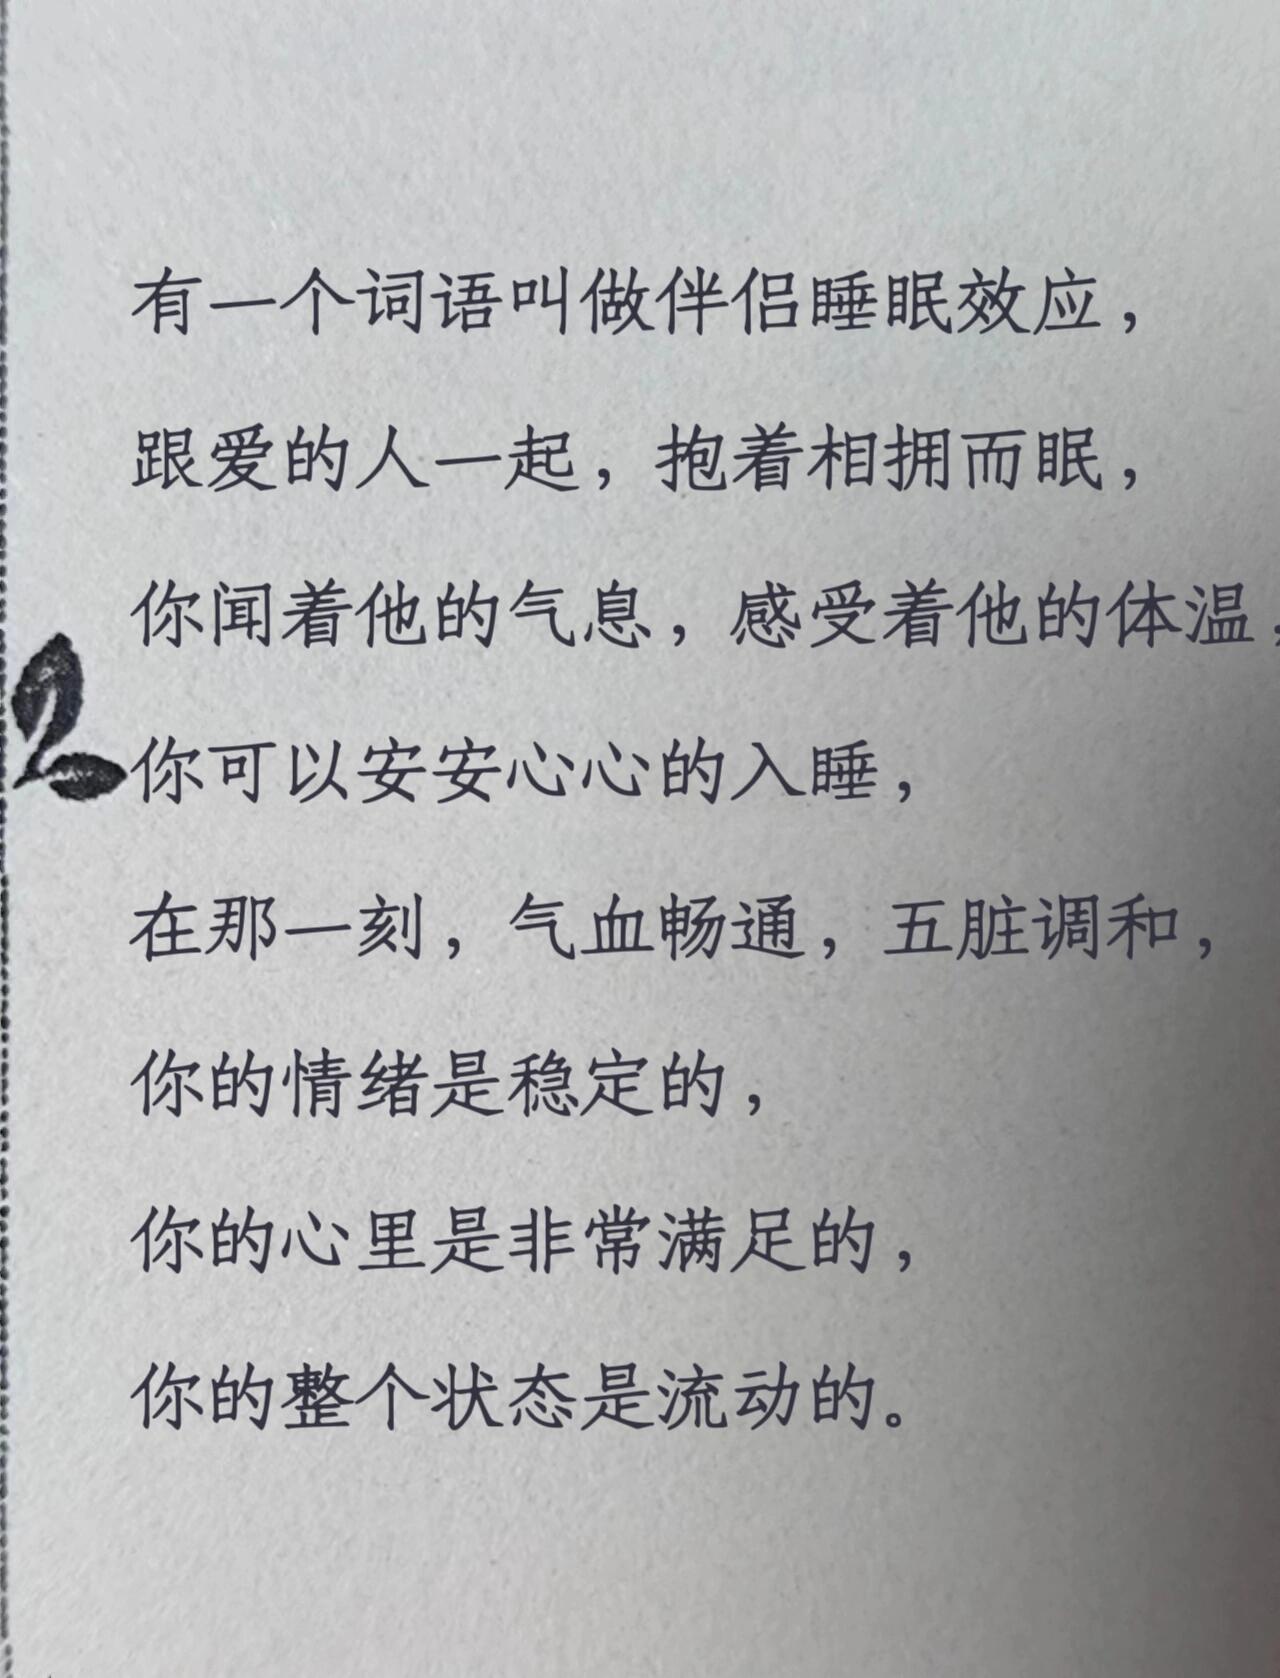 有一个词语叫做伴侣睡眠效应，
跟爱的人一起，抱着相拥而眠，
你闻着他的气息，感受着他的体温，
你可以安安心心的入睡，
在那一刻，气血畅通，五脏调和，
你的情绪是稳定的，
你的心里是非常满足的，
你的整个状态是流动的。